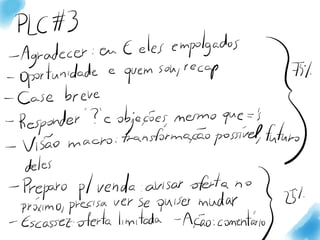 PLC #3
- Agradecer: eu E eles empolgados
- Oportunidade e quem sou, recap
- Case breve
- Responder "?" e objeções, mesmo que =s
- Visão macro: transformação possível, futuro
deles
75%
- Preparo p/ venda avisar oferta no
próximo, precisa ver se quiser mudar
- Escassez oferta limitada - Ação: comentário
25%